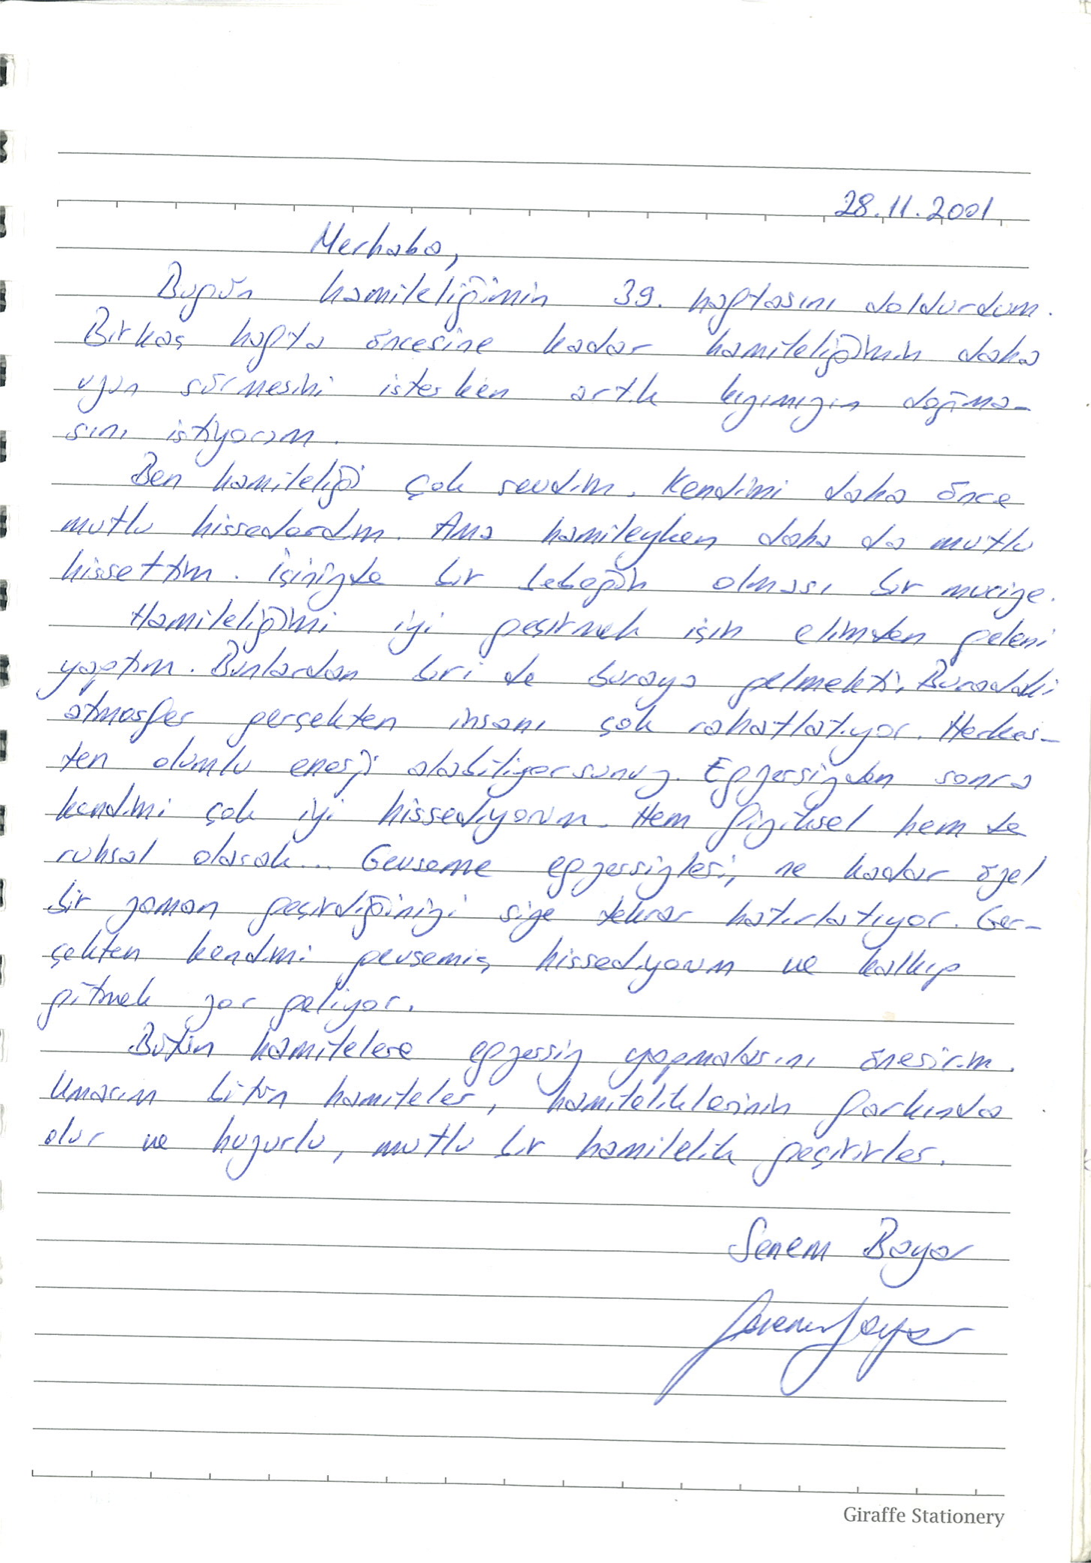 28.11.2001
Merhaba,
Bugün hamileliğimin 39. haftasını doldurdum.
Birkaç hafta öncesine kadar hamileliğimin daha
uzun sürmesini isterken artık kızımızın doğma-
sını istiyorum.
Ben hamileliği çok sevdim. Kendimi daha önce
mutlu hissederdim. Ama hamileyken daha da mutlu
hissettim. İçinizde bir bebeğin olması bir mucize.
Hamileliğimi iyi geçirmek için elimden geleni
yaptım. Bunlardan biri de buraya gelmekti. Buradaki
atmosfer gerçekten insanı çok rahatlatıyor. Herkes-
ten olumlu enerji alabiliyorsunuz. Egzersizden sonra
kendimi çok iyi hissediyorum. Hem fiziksel hem de
ruhsal olarak... Gevseme egzersizleri, ne kadar özel
bir zaman geçirdiğinizi size tekrar hatırlatıyor. Ger-
çekten kendimi gevsemiş hissediyorum ve kalkıp
gitmek zor geliyor.
Bütün hamilelere egzersiz yapmalarını öneririm.
Umarım bütün hamileler, hamileliklerinin farkında
olur ve huzurlu, mutlu bir hamilelik geçirirler.
Senem Bayar
Giraffe Stationery